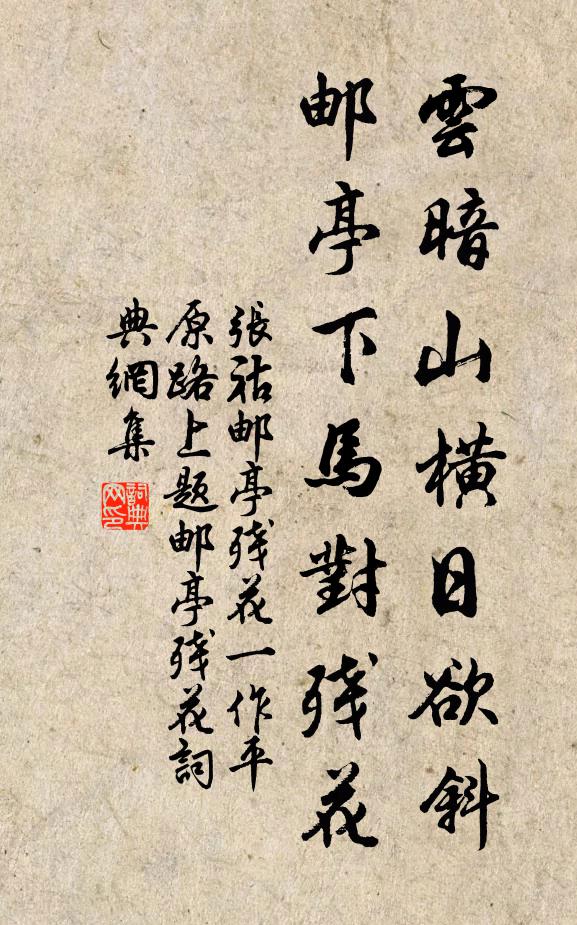 雲暗山橫日欲斜
邮亭下馬對殘花
張祜邮亭殘花一作平
原路上題邮亭殘花詞
典網集
詞典
网印